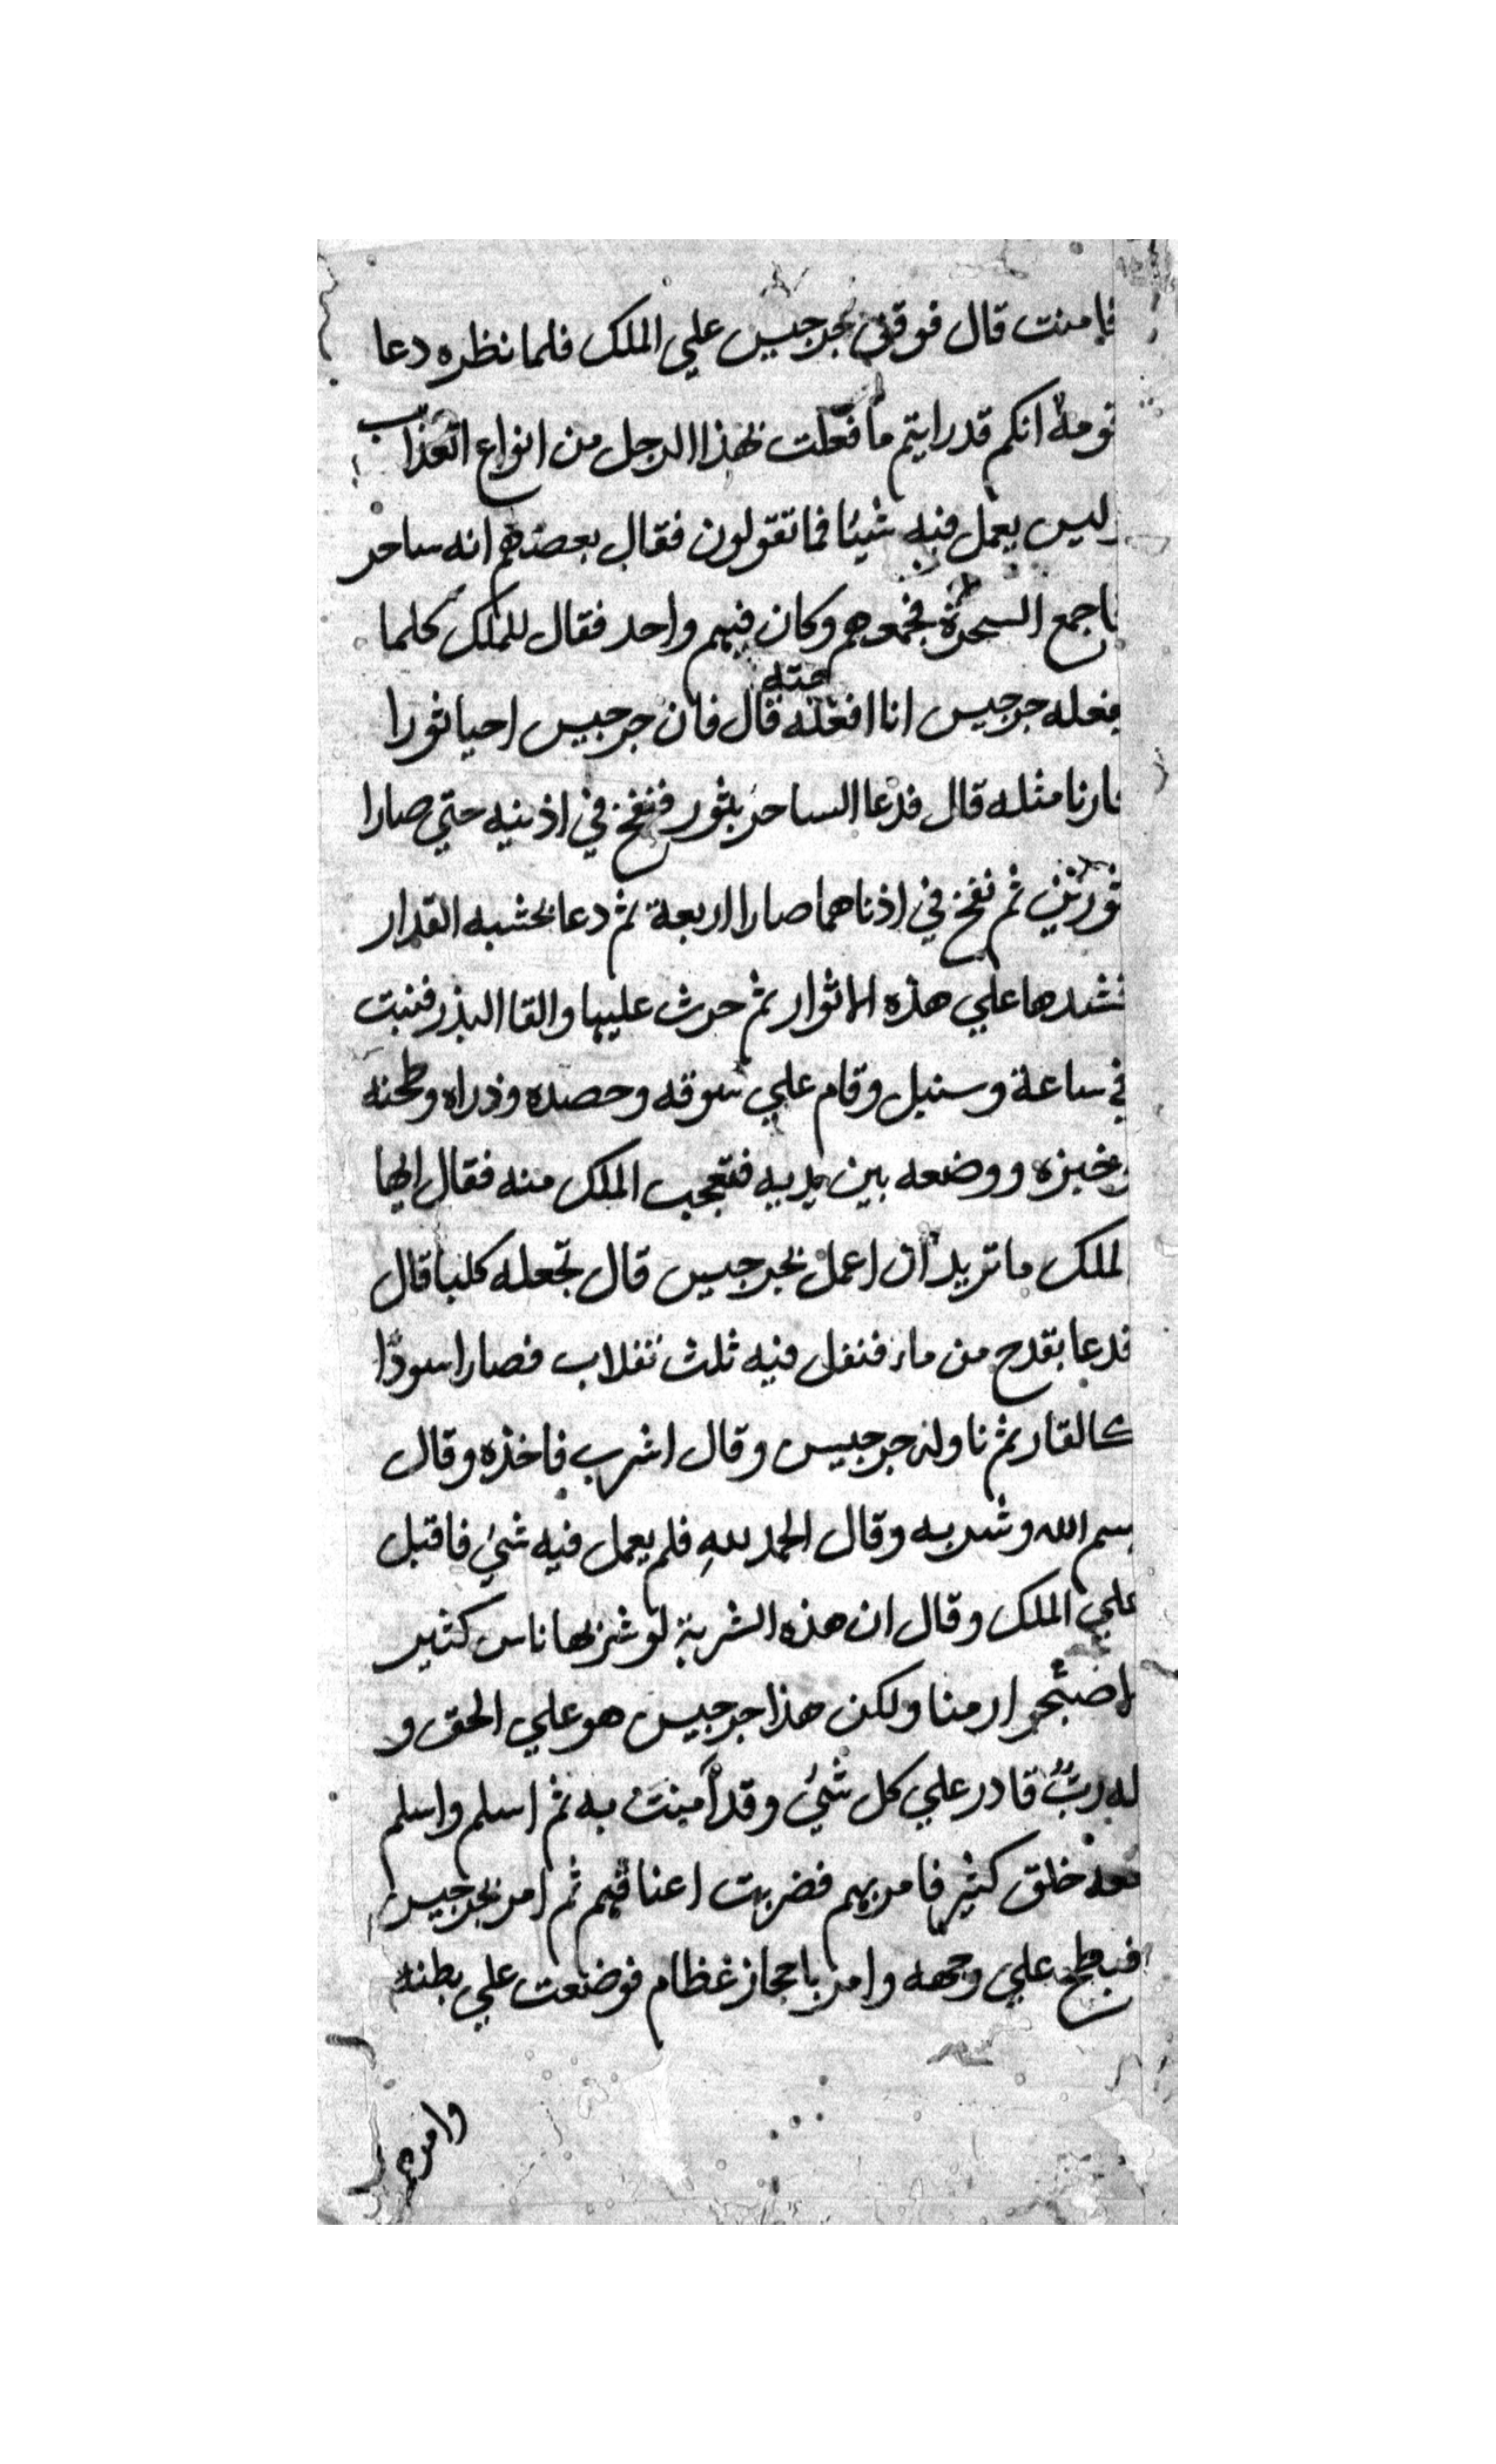 فامنت قال فوقف بجرجيس علي الملك فلما نظره دعا
قومه انكم قد رايتم ما فعلت بهذا الرجل من انواع العذاب
وليس يعمل فيه شيئا فما تقولون فقال بعضهم انه ساحر
فاجمع السحرة فجمعوهم وكان فيهم واحد فقال للملك كلما
يفعله جرجيس انا افعله قال فان جرجيس احيا ثورا
فارنا مثله قال فدعا الساحر بثور فنفخ في اذنيه حتي صارا
ثورين ثم نفخ في اذناهما صارا اربعة ثم دعا بخشبه القدار
فشدها علي هذه الاثوار ثم حرث عليها والقا البذر فنبت
في ساعة وسنبل وقام علي سوقه وحصده وذراه وطحنه
وخبزه ووضعه بين يديه فتعجب الملك منه فقال ايها
الملك ما تريد ان اعمل بجرجيس قال تجعله كلبا قال
فدعا بقدح من ماء فتفل فيه ثلث تفلات فصار اسودا
كالقار ثم ناوله جرجيس وقال اشرب فاخذه وقال
بسم الله وشربه وقال الحمد لله فلم يعمل فيه شيء فاقبل
علي الملك وقال ان هذه الشربة لو شربها ناس كثير
لاضبحوا رمنا ولكن هذا جرجيس هو علي الحق و
له رب قادر علي كل شيء وقد آمنت به ثم اسلم واسلم
معه خلق كثير فامر بهم فضربت اعناقهم ثم امر بجرجيس
فبطح علي وجهه وامر باحجاز عظام فوضعت علي بطنه
وامره